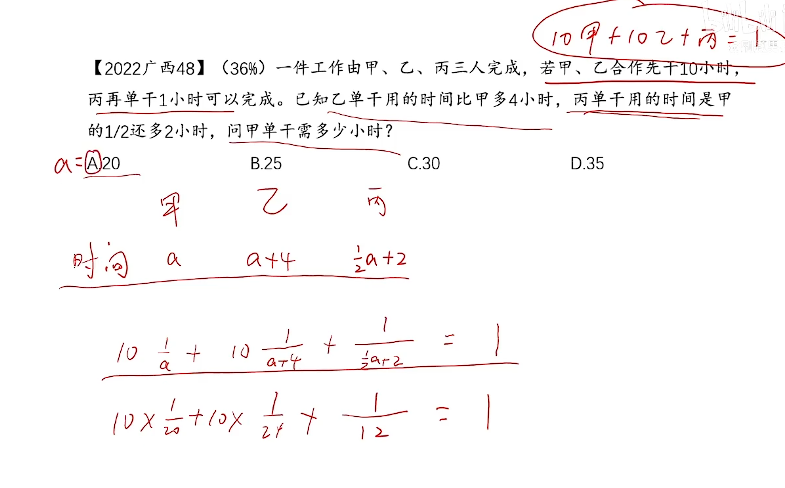 10甲+10乙+丙=1
【2022广西48】（36%）一件工作由甲、乙、丙三人完成，若甲、乙合作先干10小时，
丙再单干1小时可以完成。已知乙单干用的时间比甲多4小时，丙单干用的时间是甲
的1/2还多2小时，问甲单干需多少小时？
a=A.20 B.25 C.30 D.35
甲 乙 丙
时间 a a+4 1/2a+2
10 1/a + 10 1/(a+4) + 1/(1/2a+2) = 1
10×1/20+10×1/24+1/12 = 1